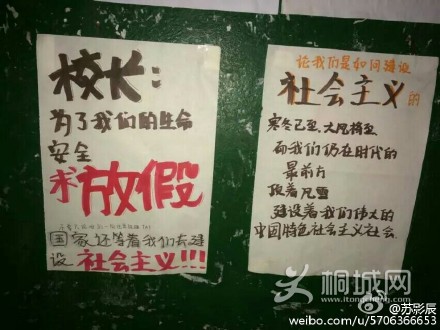 校长:
为了我们的生命
安全
求放假
国家还等着我们去建
设 社会主义!!!
论我们是如何建设
社会主义的
寒冬已至,大风将至
而我们仍在时代的
最前方
顶着风雪
建设着我们伟大的
中国特色社会主义社会
桐城网
www.itongcheng.com
@苏影辰
weibo.com/u/5706366653